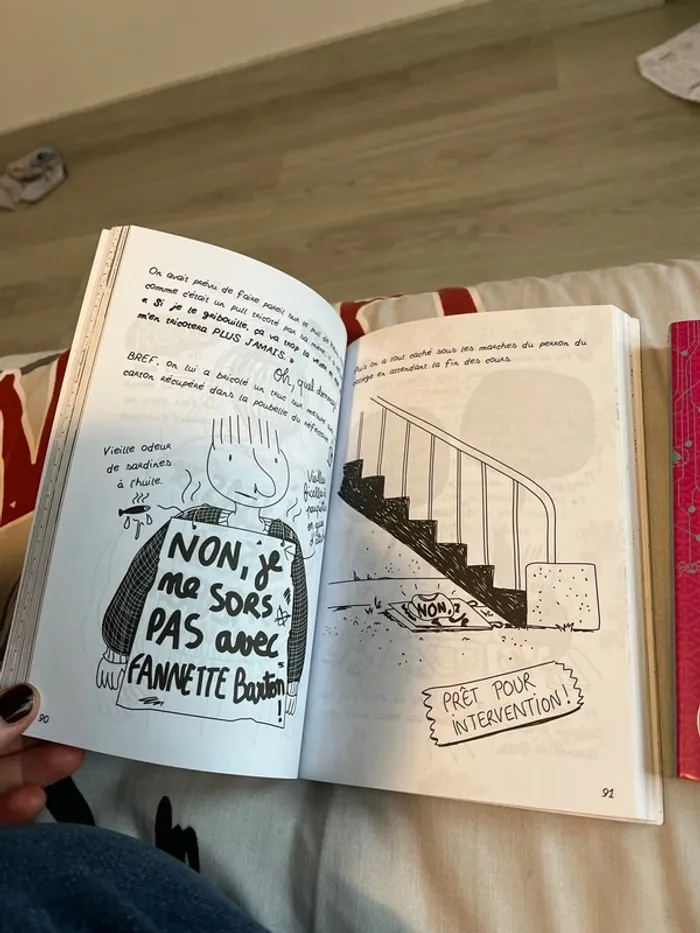 On avait prévu de faire pareil sur le pull de
comme c'était un pull tricoté par sa mère,
« Si je le gribouille, ça va trop la vexer et
m'en tricotera PLUS JAMAIS. »
Oh, quel
BREF. On lui a bricolé un truc sur mesure
carton récupéré dans la poubelle du réfectoire.
Vieille odeur
de sardines
à l'huile.
NON, je
me SORS
PAS avec
FANNETTE Barton
!
90
Puis on a tout caché sous les marches du perron du
collège en attendant la fin des cours.
NON, J
PRÊT POUR
INTERVENTION!
91